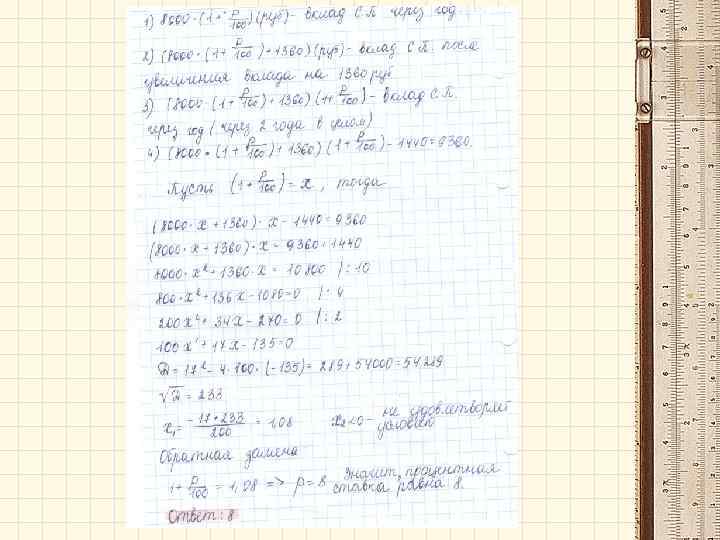 1) 8000·(1+ p/100) (руб) - вклад С.П. через год
2) (8000·(1+ p/100)+1360) (руб) - вклад С.П. после
увеличения вклада на 1360 руб
3) (8000·(1+ p/100)+1360)(1+ p/100) - вклад С.П.
через год (через 2 года в целом)
4) (8000·(1+ p/100)+1360)(1+ p/100) - 1440=9360.
Пусть (1+ p/100)=x, тогда
(8000·x+1360)·x-1440=9360
(8000·x+1360)·x=9360+1440
8000·x²+1360·x=10800 /:10
800·x²+136x-1080=0 /:4
200x²+34x-270=0 /:2
100x²+17x-135=0
D=17²-4·100·(-135)=289+54000=54289
√D=233
x₁= -17+233/200 = 1,08 x₂<0- не удовлетворяет
условию
Обратная замена
1+ p/100 = 1,08 => p=8 Значит, процентная
ставка равна 8.
Ответ: 8